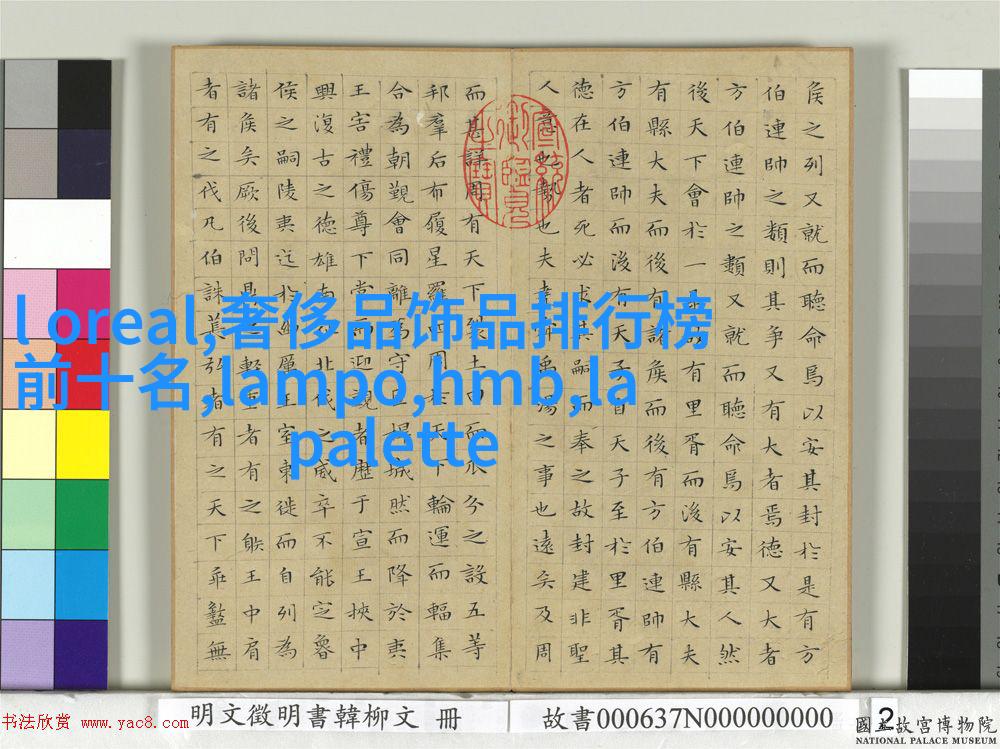 侯之列又就而聽命焉以安其封於是有方
伯連帥之類則其爭又有大者焉德又大者
方伯連帥之類又就而聽命焉以安其人然
後天下會於一是故有里胥而後有縣大夫
有縣大夫而後有諸侯而後有方伯連帥有
方伯連帥而後有天子自天子至於里胥其
德在人者死必求其嗣而奉之故封建非聖
人意也勢也夫堯舜禹湯之事也遠矣及周
而甚詳周有天下裂土田而瓜分之設五等
邦羣后布履星羅四周於天下輪運而輻集
合為朝覲會同離為守臣扞城然而降於夷
王害禮傷尊下堂而迎覲者歷于宣王挾中
興復古之德雄南征北伐之威卒不能定魯
侯之嗣陵夷迄於幽厲王室東徙而自列為
諸侯矣厥後問鼎之輕重者有之射王中肩
者有之伐凡伯誅萇弘者有之天下乖盭無
l oreal,奢侈品饰品排行榜
前十名,lampo,hmb,la
palette
明文徵明書韓柳文 冊
故書000637N000000000
2
書法欣赏 www.yac8.com
國立故宮博物院
NATIONAL PALACE MUSEUM